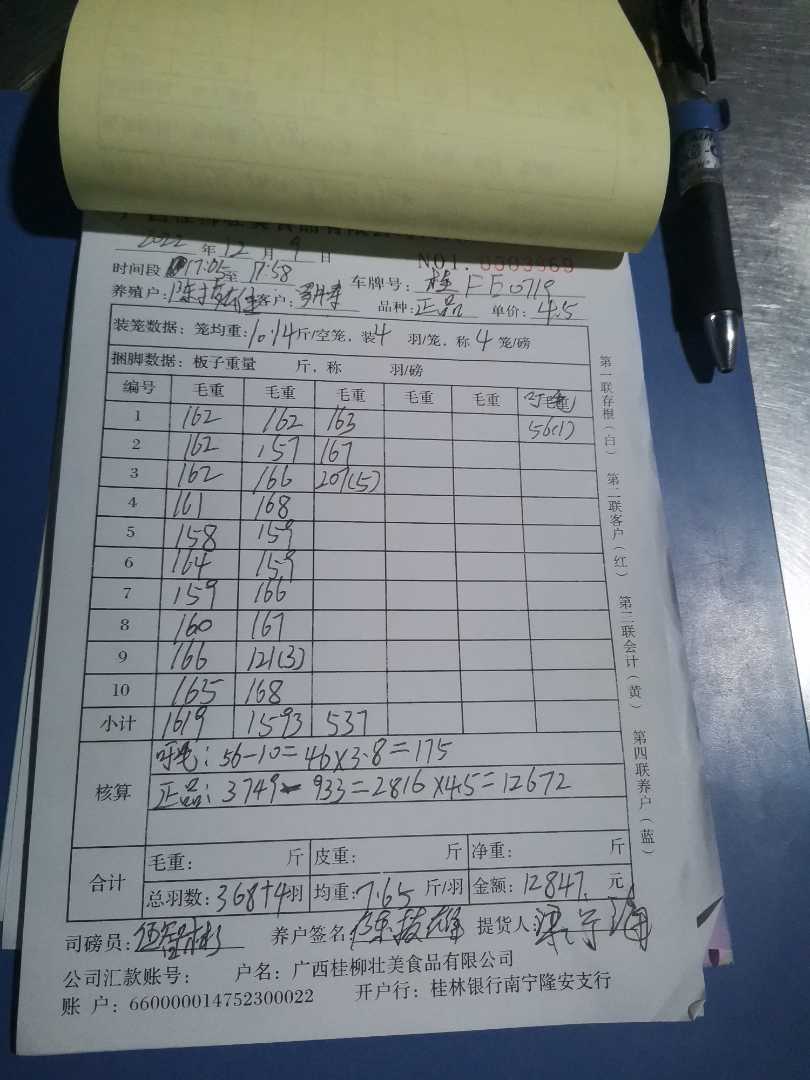 2022 年 12 月 9 日 NO1. 0303969
时间段 17:05 至 17:58 车牌号: 桂FE0719
养殖户: 客户: 品种: 正品 单价: 4.5
装笼数据: 笼均重: 10.14 斤/空笼, 装 4 羽/笼, 称 4 笼/磅
捆脚数据: 板子重量 斤, 称 羽/磅
编号 毛重 毛重 毛重 毛重 毛重
1 162 162 163 56(1)
2 162 157 167
3 162 166 207(5)
4 161 168
5 158 159
6 164 159
7 159 166
8 160 167
9 166 121(3)
10 165 168
小计 1619 1593 537
核算
56-10=46×3.8=175
正品: 3749-933=2816×4.5=12672
合计
毛重: 斤 皮重: 斤 净重: 斤
总羽数: 368+4 羽 均重: 7.65 斤/羽 金额: 12847. 元
司磅员: 养户签名: 提货人:
公司汇款账号: 户名: 广西桂柳壮美食品有限公司
账 户: 660000014752300022 开户行: 桂林银行南宁隆安支行
第一联存根(白) 第二联客户(红) 第三联会计(黄) 第四联养户(蓝)